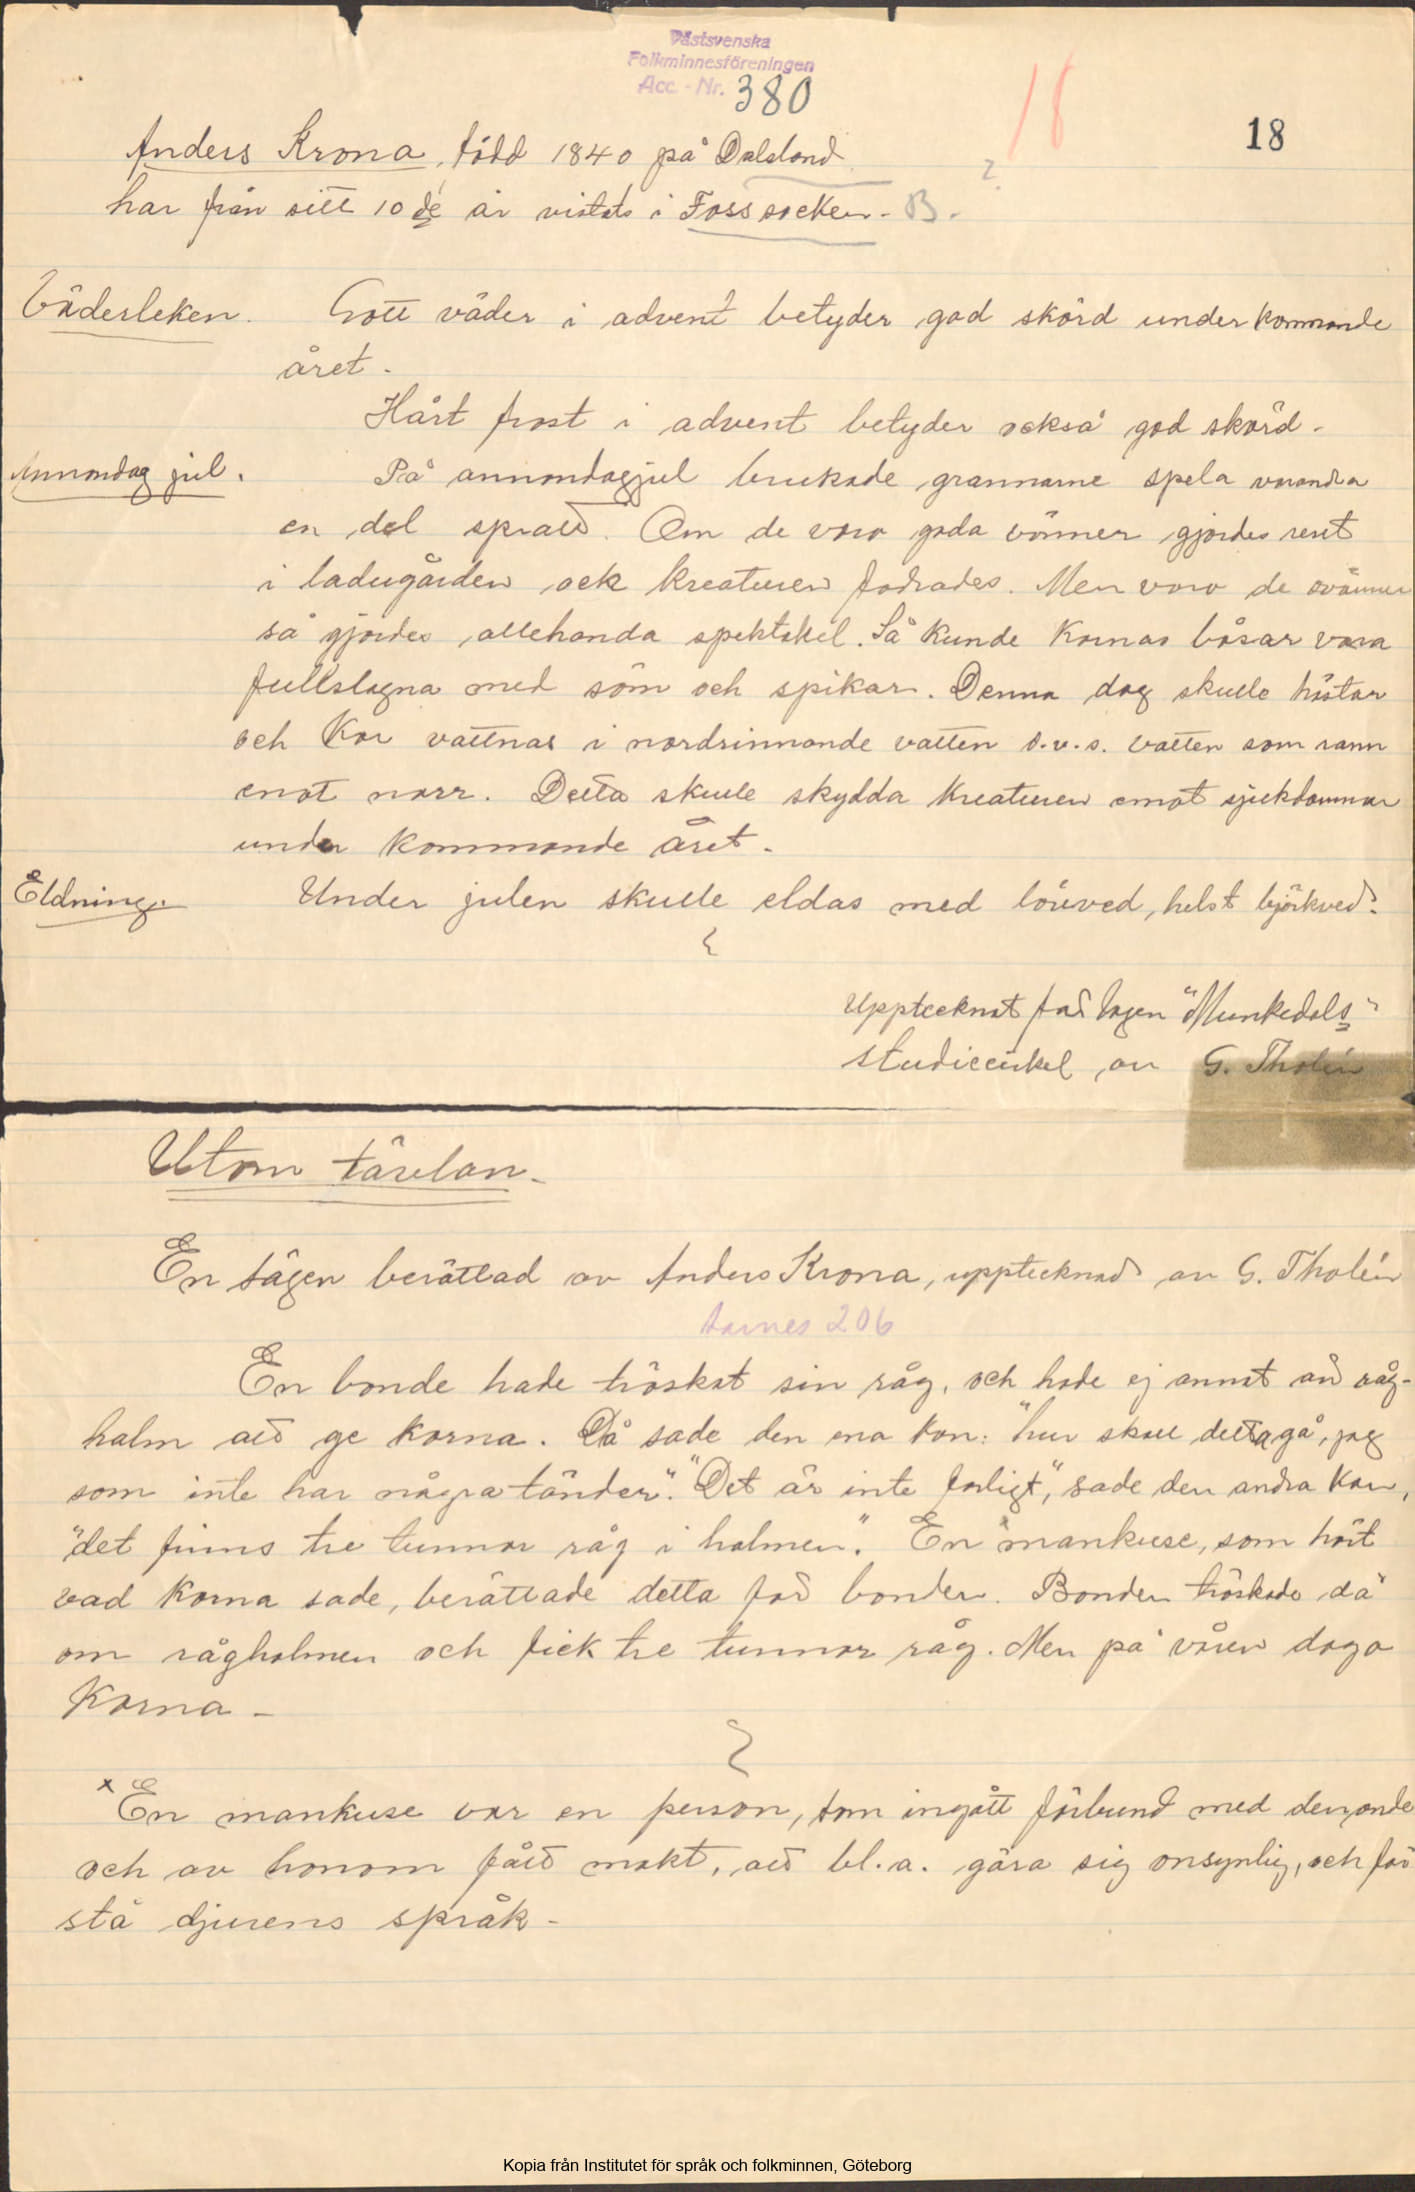 Västsvenska
Folkminnesföreningen
Acc.-Nr. 380
18
18
Anders Krona, född 1840 på Dalsland
?
har från sitt 10 de år vistats i Foss socken. B.
Väderleken. Gott väder i advent betyder god skörd under kommande
året.
Hårt frost i advent betyder också god skörd.
Annandag jul. På annandagjul brukade grannarne spela varandra
en del spratt. Om de voro goda vänner gjordes rent
i ladugården ock kreaturen fodrades. Men voro de ovänner
så gjordes allehanda spektakel. Så kunde kornas båsar vara
fullslagna med söm och spikar. Denna dag skulle hästar
och kor vattnas i nordrinnande vatten d.v.s. vatten som rann
emot norr. Detta skulle skydda kreaturen emot sjukdommar
under kommande året.
Eldning. Under julen skulle eldas med löwed, helst björkved.
Upptecknat för Sagen "Munkedals"
studiecirkel av G. Tholén
Utom tävlan.
En sägen berättad av Anders Krona, upptecknad av G. Tholén
Aarnes 206
En bonde hade tröskat sin råg, och hade ej annat än råg-
halm att ge korna. Då sade den ena kon: "hur skall detta gå, jag
som inte har några tänder". "Det är inte farligt", sade den andra kon,
"det finns tre tunnor råg i halmen". En x mankuse, som hört
vad korna sade, berättade detta för bonden. Bonden tröskade då
om råghalmen och fick tre tunnor råg. Men på våren dogo
korna.
x En mankuse var en person, som ingått förbund med den onde
och av honom fått makt, att bl.a. göra sig osynlig, och för
stå djurens språk.
Kopia från Institutet för språk och folkminnen, Göteborg